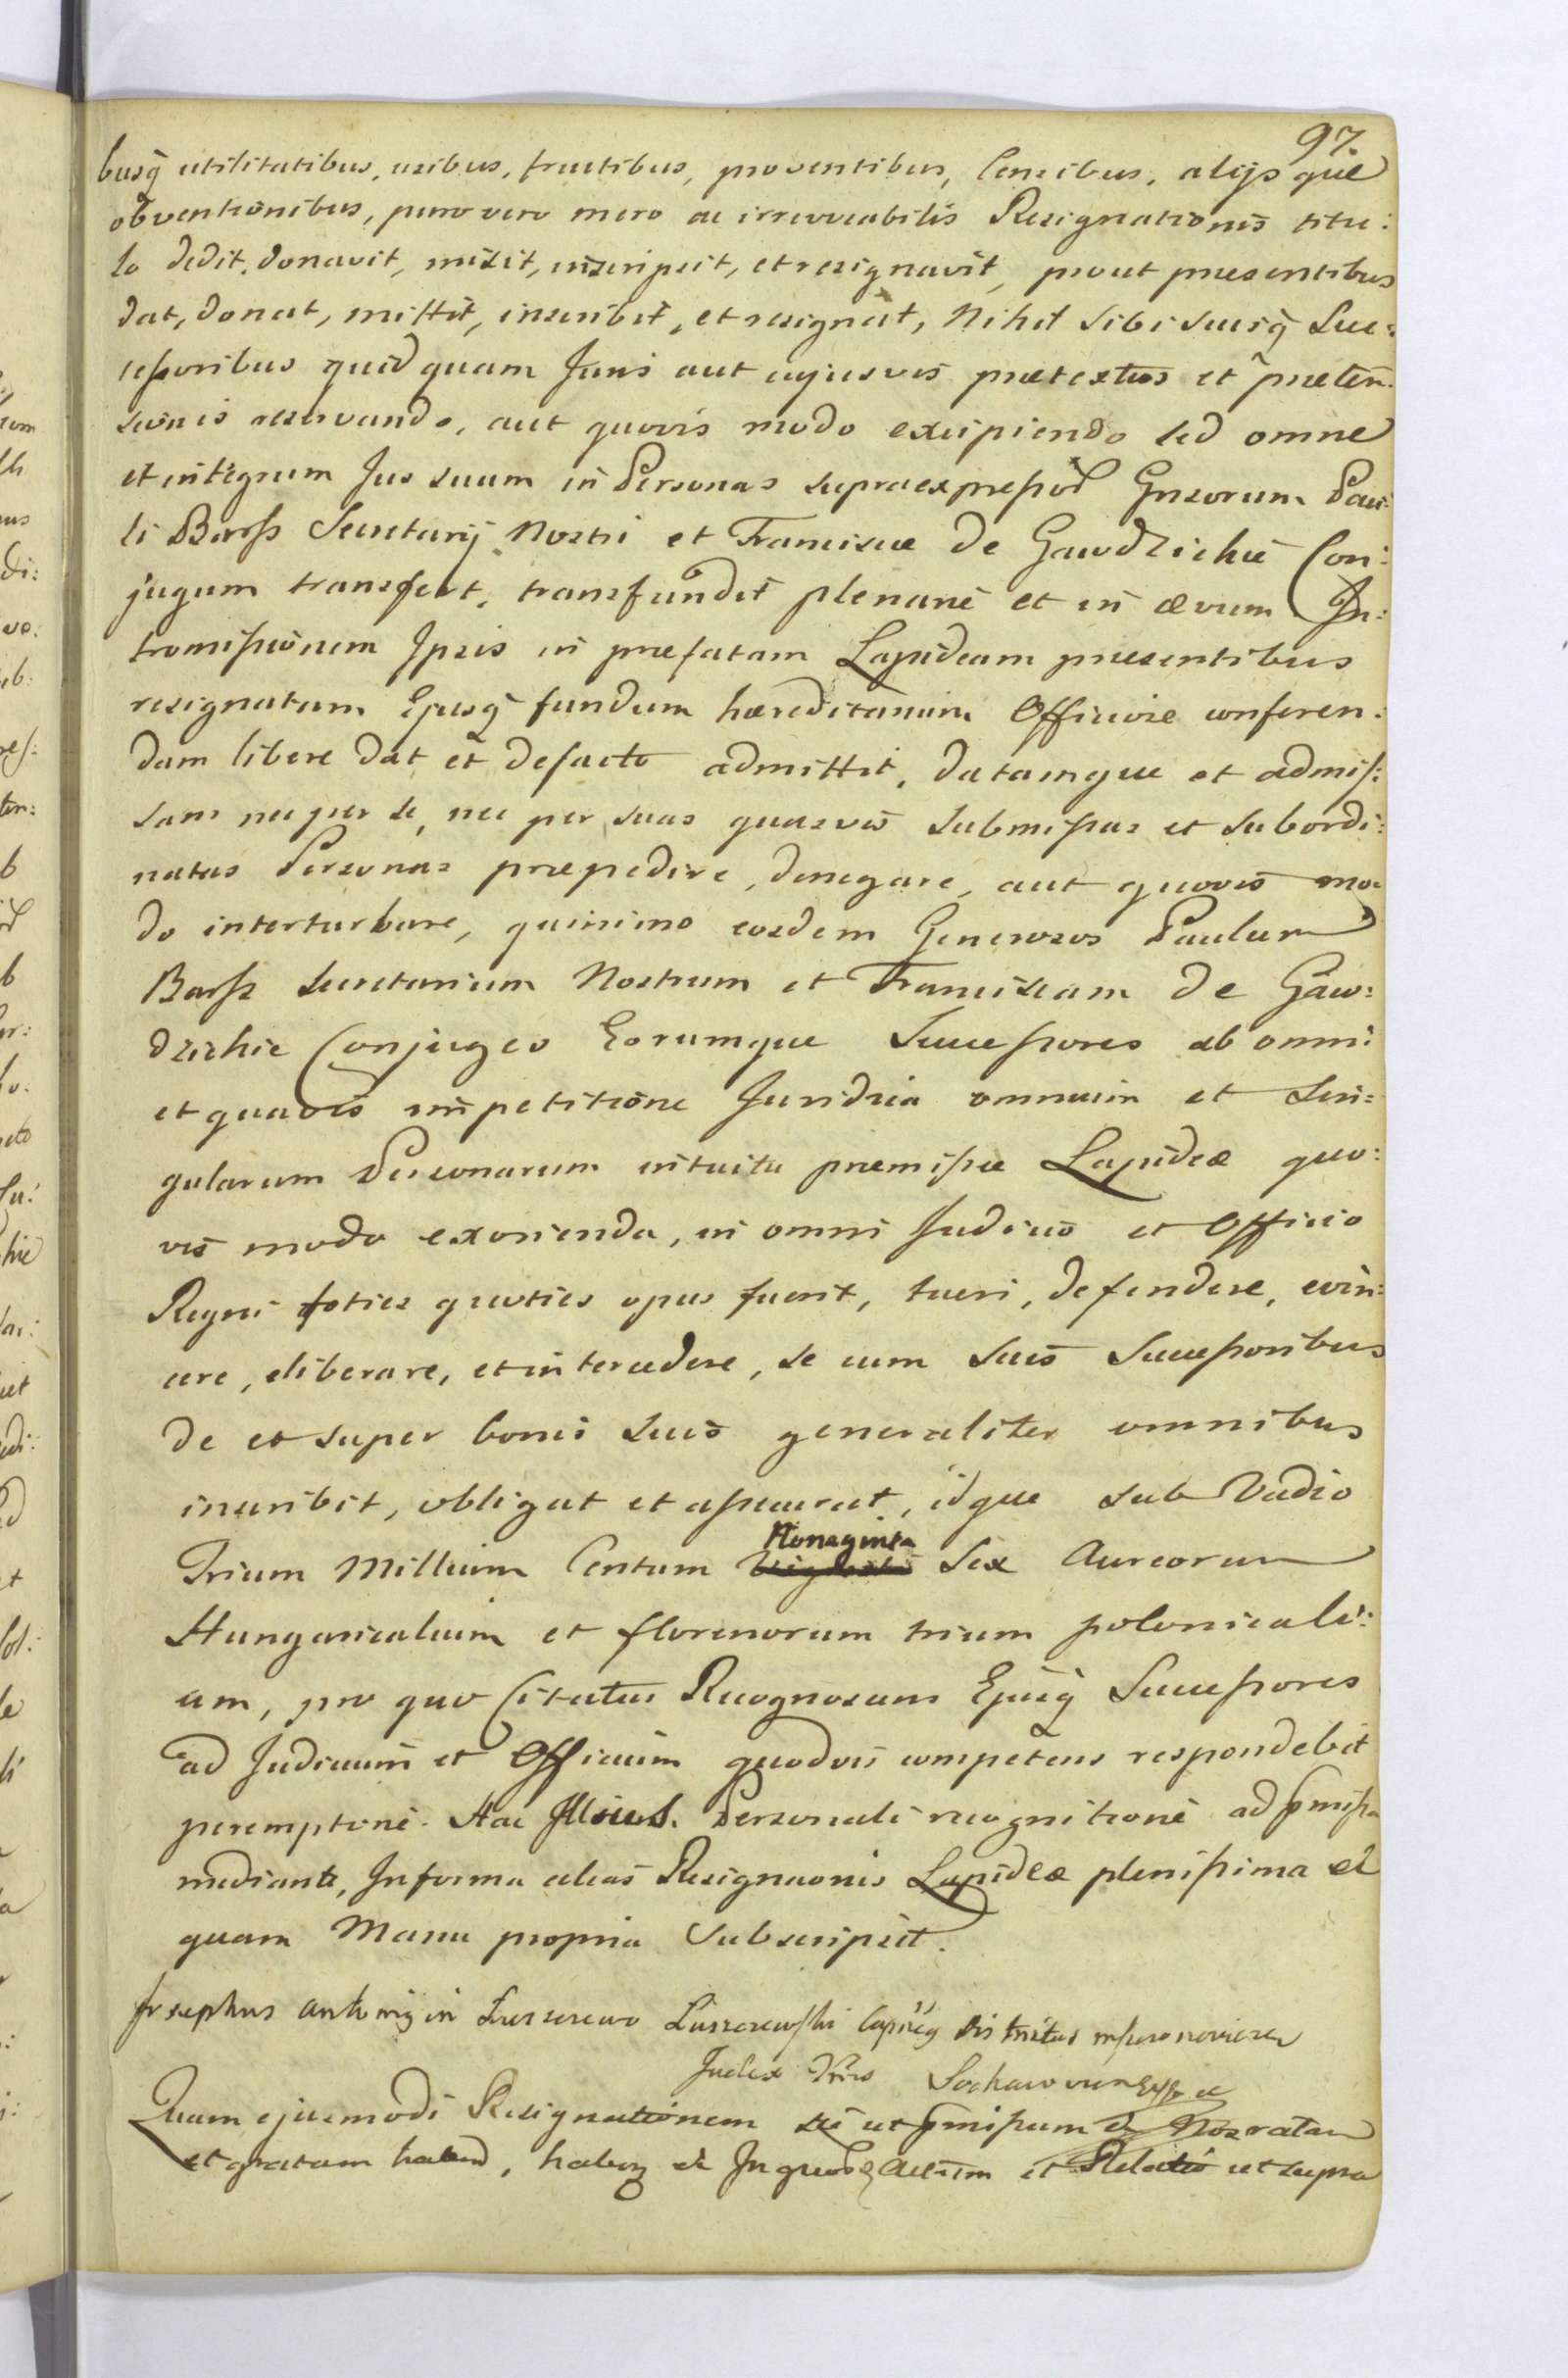 97.
busq̃ utilitatibus, usibus, fructibus, proventibus, Censibus, alijs que
obventionibus, puro vero mero ac irrevocabilis Resignationis titu:
lo dedit, donavit, misit, inscripsit, et resignavit, prout praesentibus
dat, donat, mittit, inscribit, et resignat, Nihil sibi suisq̃ Suc:
cessoribus quidquam Juris aut cujusvis praetextus et praeten:
sionis reservando, aut quovis modo excipiendo sed omne
et integrum Jus suum in Personas supraexpressor Gnsorum Pau:
li Barss Secretarij Nostri et Franciscae de Gawdzickie Con:
jugum transfert, transfundit plenarie et in aevum In:
tromissionem Ipsis in praefatam Lapideam praesentibus
resignatam Ejusq̃ fundum haereditarium Officiose conferen:
dam libere dat et defacto admittit, datamque et admis:
sam nec per se, nec per suas quasvis submissas et subordi:
natas Personas praepedire, denegare, aut quovis mo:
do interturbare, quinimo eosdem Generosos Paulum
Barss Secretarium Nostrum et Franciscam de Gaw:
dzickie Conjuges Eorumque Successores ab omni
et quavis impetitione Juridica omnium et Sin:
gularum Personarum intuitu praemissae Lapideae quo:
vis modo exorienda, in omni Judicio et Officio
Regni toties quoties opus fuerit, tueri, defendere, evin:
cere, eliberare, et intercedere, se cum suis Successoribus
de et super bonis suis generaliter omnibus
inscribit, obligat et assecurat, idque sub Vadio
Trium Millium Centum Nonaginta Sex Aureorum
Hungaricalium et florenorum trium polonicali:
um, pro quo Citatus Recognoscens Ejusq̃ Successores
ad Judicium et Officium quodvis competens respondebit
peremptorie. Hac Personali recognitione ad pmissa
mediante, In forma alias Resignaonis Lapideae plenissima et
quam Manu propria Subscripsit.
Josephus Antonij in
Judex Sochaw
Quam ejusmodi Resignationem sic ut pmissum e Nos ratam
et gratam habend, In quor Actum et Relatio ut supra